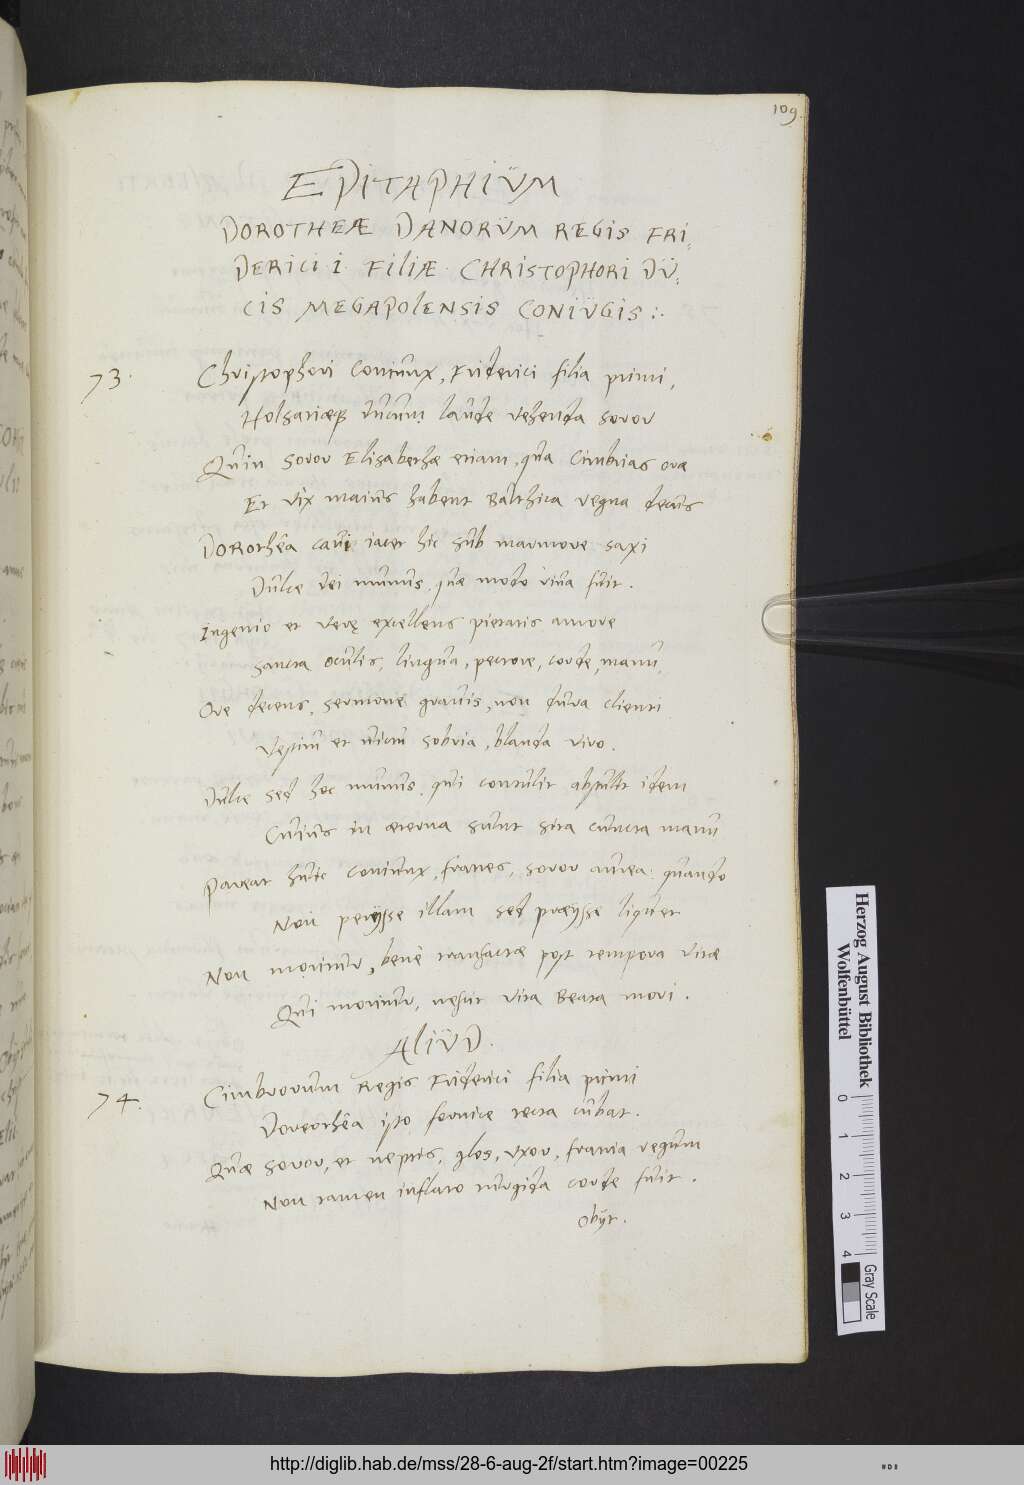 109.
EPITAPHIŬM
DOROTHEÆ DANORŬM REGIS FRI-
DERICI I. FILIÆ CHRISTOPHORI DŬ-
CIS MEGAPOLENSIS CONIŬGIS :.
73. Christophori Coniunx, Friderici filia primi,
Holsatiæq̃ ducum laude vehenda soror
Quin soror Elisabethæ etiam, qua Cimbrias oræ
Et vix maius habent Balthica regna decus
Dorothêa cavi iacet hic sub marmore saxi
Dulce dei munus, quæ modo viva fuit.
Ingenio et veræ excellens pietatis amore
Sancta oculis, lingua, pectore, corde, manu,
Ore decens, sermone gravis, non dura clienti
Vestitu et victu sobria, blanda viro.
Dulce sed hoc munus, qui contulit abstulit idem
Cuius in æterna sunt sita cuncta manu
Pareat huic coniunx, fratres, soror aurea: quando
Non perijsse illam sed præijsse liquet
Non moritur, benè transactæ post tempora vitæ
Qui moritur, nescit vita Beata mori.
ALIŬD.
74. Cimbrorum Regis Friderici filia primi
Doreothêa isto fornice tecta cubat.
Quæ soror, et neptis, glos, vxor, fratria regum
Non tamen inflato turgida corde fuit.
Obijt.
Herzog August Bibliothek
Wolfenbüttel
0 1 2 3 4
Gray Scale
http://diglib.hab.de/mss/28-6-aug-2f/start.htm?image=00225